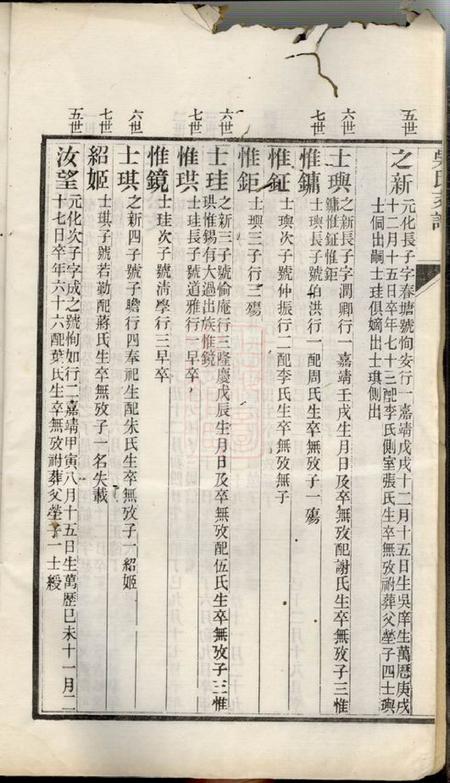 五世
之新
元化長子字春塘號恂安行一嘉靖戊戌十二月十五日生吳庠生萬曆庚戌
十二月十五日卒年七十三配李氏側室張氏生卒無攷祔葬父塋子四士璵
士侗出嗣士珪俱嫡出士琪側出
六世
士璵
之新長子字潤卿行一嘉靖壬戌生月日及卒無攷配謝氏生卒無攷子三惟
鏞惟鉦惟鉅
七世
惟鏞
士璵長子號伯洪行一配周氏生卒無攷子一殤
惟鉦
士璵次子號仲振行二配李氏生卒無攷無子
惟鉅
士璵三子行三殤
六世
士珪
之新三子號愉庵行三隆慶戊辰生月日及卒無攷配伍氏生卒無攷子三惟
珙惟錫有大過出族惟鏡
七世
惟珙
士珪長子號道雅行一早卒
惟鏡
士珪次子號清學行三早卒
六世
士琪
之新四子號子瞻行四奉祀生配朱氏生卒無攷子一紹姬
七世
紹姬
士琪子號若勒配蔣氏生卒無攷子一名失載
五世
汝望
元化次子字成之號恂如行二嘉靖甲寅八月十五日生萬歷己未十一月二
十七日卒年六十六配葉氏生卒無攷祔葬父塋子一士綬